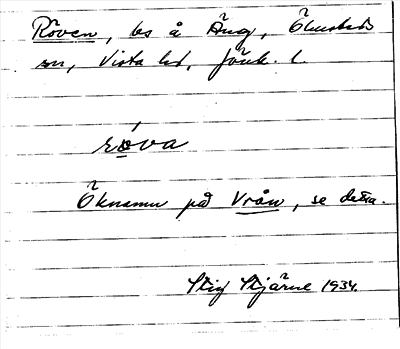 Röven, bs å Äng, Ölmstads
sn, Vista hd, Jönk. l.
röva
Öknamn på Vrån, se detta.
Stig Stjärne 1934.